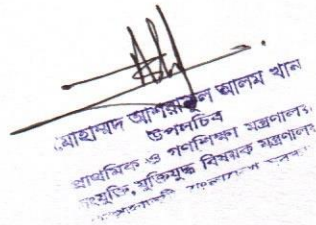 মোহাম্মদ আশরাফুল আলম খান
উপসচিব
প্রাথমিক ও গণশিক্ষা মন্ত্রণালয়
সংযুক্তি, মুক্তিযুদ্ধ বিষয়ক মন্ত্রণালয়